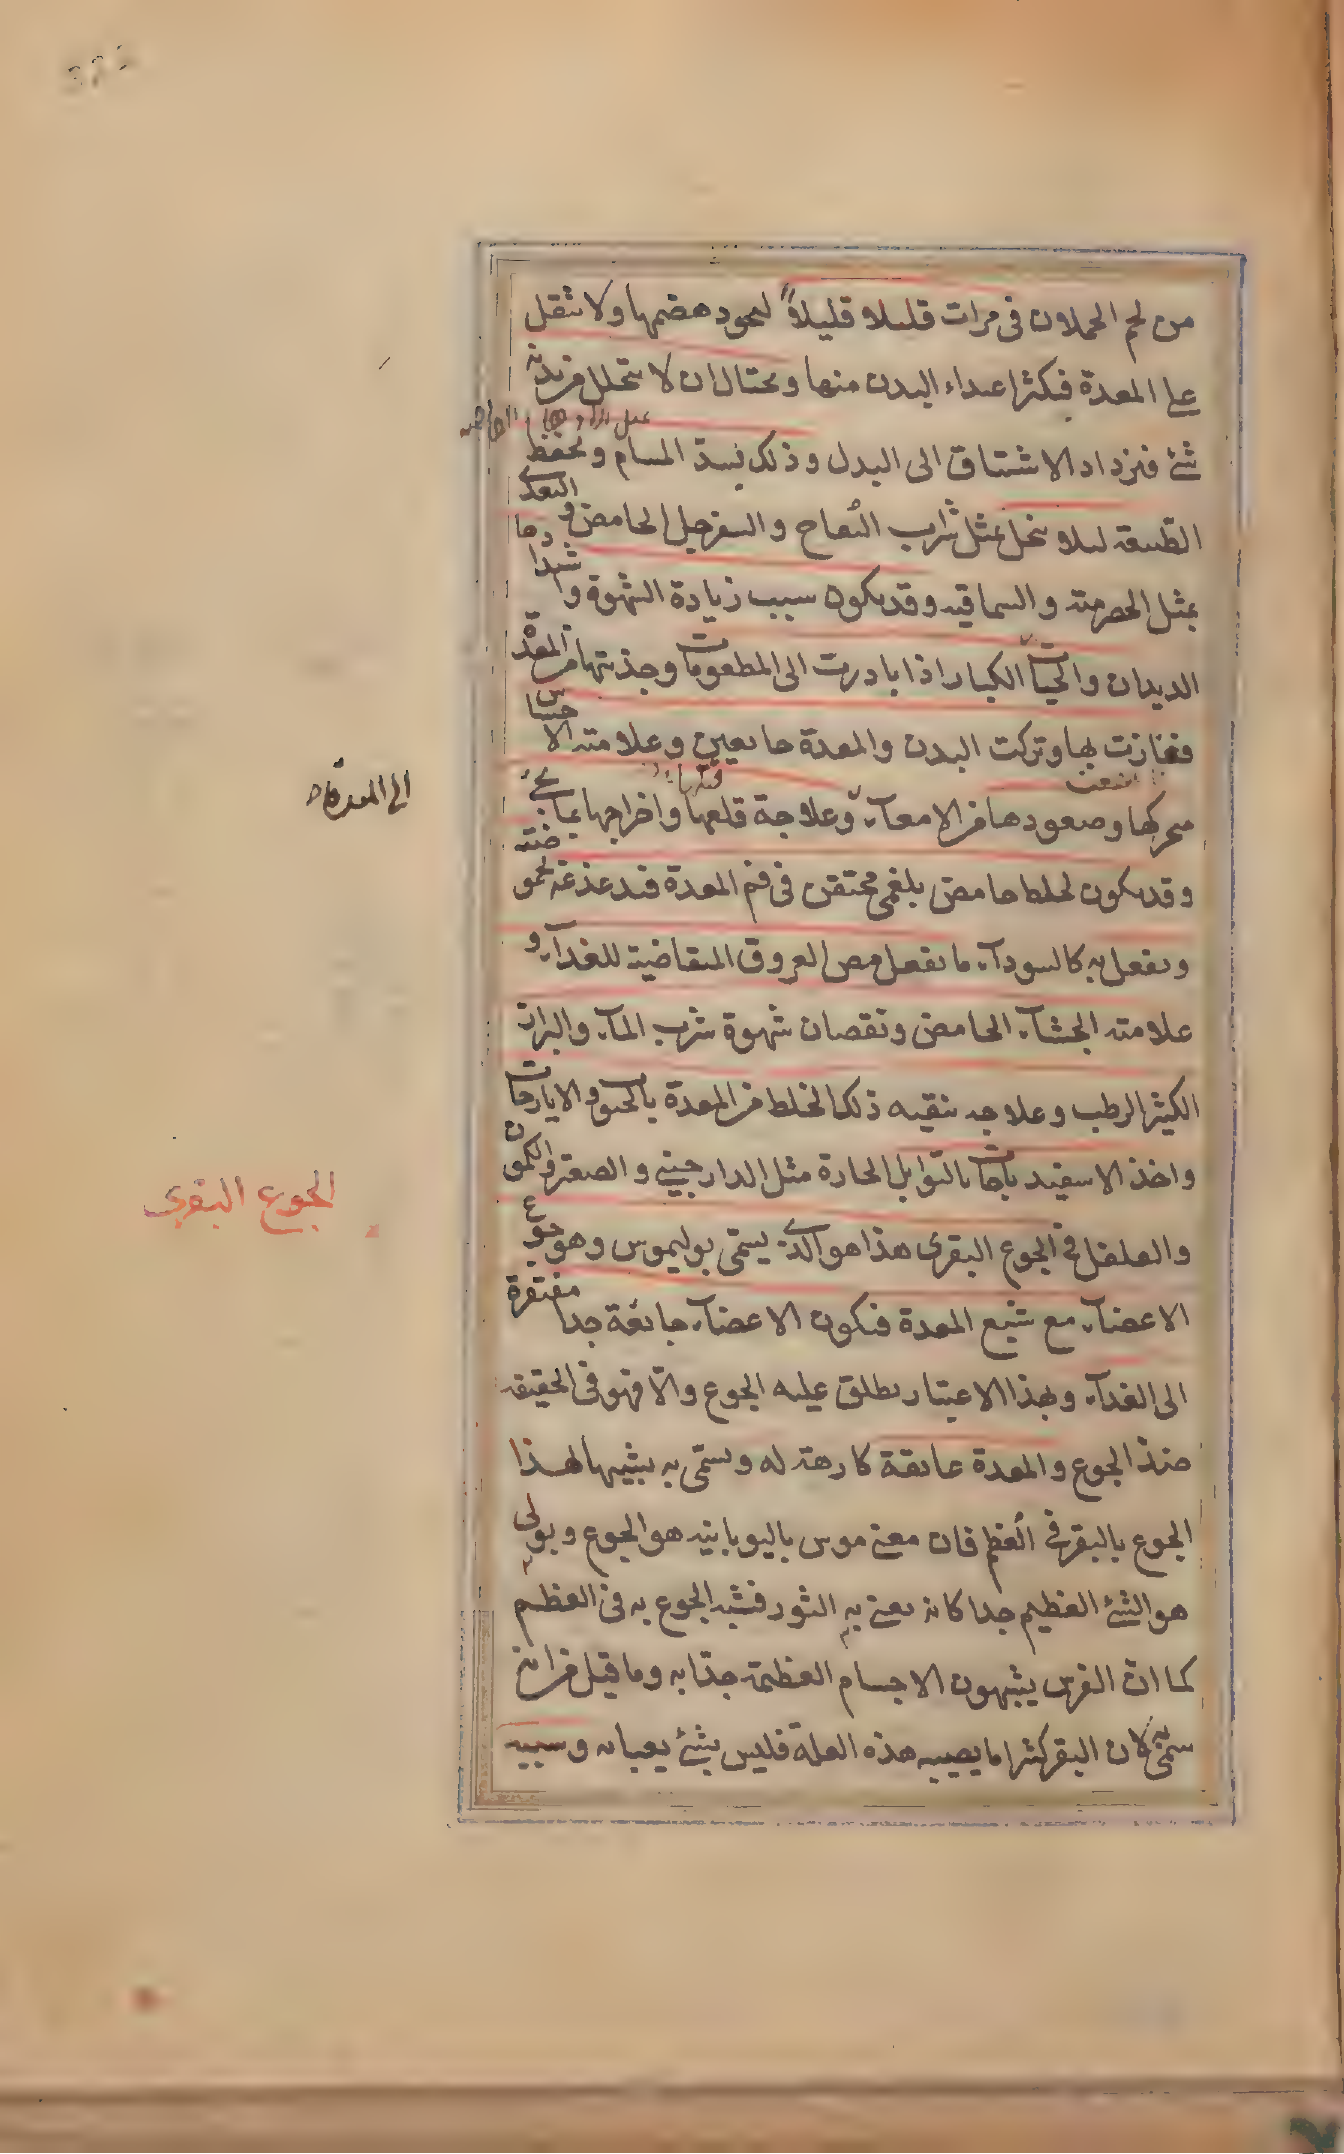 من لحم الحملان فى مرات قليلا قليلاً ليجود هضمها ولا تثقل
على المعدة فيكثر اغتذاء البدن منها ويحتال ان لا يتحلل من بدنه
شئ فيزداد الاشتياق الى البدل وذلك بسد المسام ويحفظ
الطبيعة ليلا ينحل بمثل شراب التفاح والسفرجل الحامض و
بمثل الحصرمية والسماقية وقد يكون سبب زيادة الشهوة
الديدان والحيات الكبار اذا بادرت الى المطعومات وجذبتها من المعدة
ففازت بها وتركت البدن والمعدة جايعين وعلامته الاحساس
بحركتها وصعودها من الامعآء وعلاجة قلعها واخراجها بما يجئ
الى المعدة
وقد يكون لخلط حامض بلغمى محتقن فى فم المعدة فيدغدغه بحموضته
ويفعل به كالسودآء ما يفعل مص العروق المتقاضية للغدآء و
علامته الجشآء الحامض ونقصان شهوة شرب المآء والبراز
الكثير الرطب وعلاجه تنقيه ذلك الخلط من المعدة بالحبوب والايارجات
واخذ الاسفيد باجات بالتوابل الحادة مثل الدارجينى والصعتر والكمون
والفلفل فى الجوع البقرى هذا هو الذى يسمّى بوليموس وهو جوع
الجوع البقرى
الاعضآء مع شبع المعدة فيكون الاعضآء جائعة جدا مفتقرة
الى الغدآء وبهذا الاعتبار يطلق عليه الجوع والّا فهو فى الحقيقه
ضد الجوع والمعدة عايفة كارهة له ويسمّى به تشبيها لهذا
الجوع بالبقر فى العظم فان معنى موس باليونانيه هو الجوع وبولى
هو الشئ العظيم جدا كانه يعنى به الثور فشبه الجوع به فى العظم
كما ان الفرس يشبهون الاجسام العظيمة جدّا به وما قيل من انه
سمّى لان البقر كثيرا ما يصيبه هذه العلة فليس بشئ يعبا به وسببه